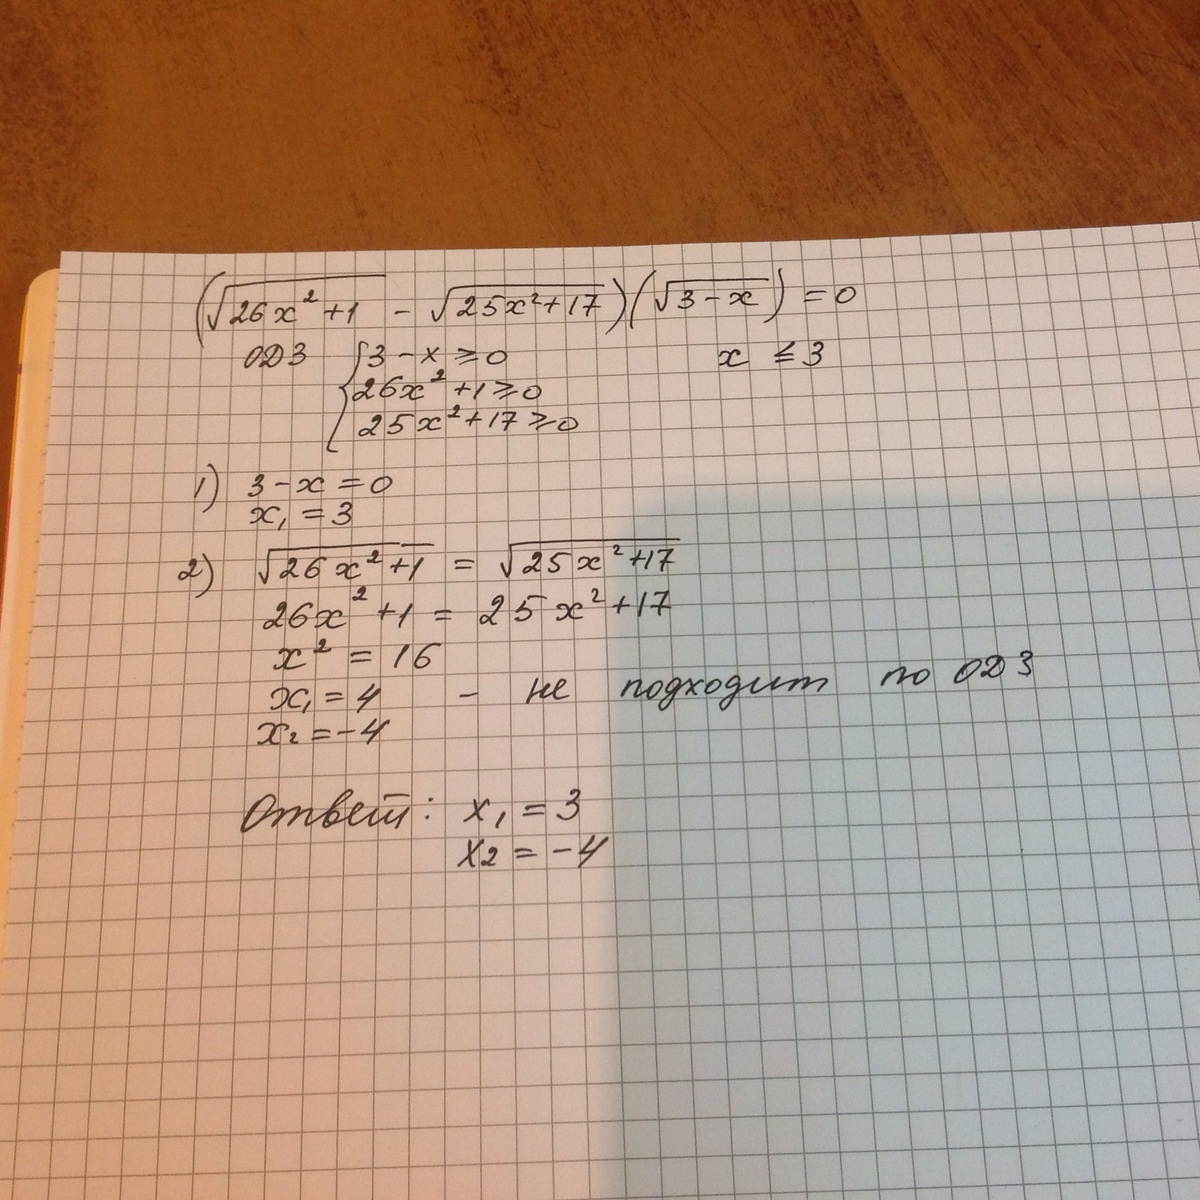 (√26x²+1 - √25x²+17)(√3-x) = 0
ОДЗ {3-x ≥ 0 x ≤ 3
26x² +1 ≥ 0
25x²+17 ≥ 0
1) 3-x = 0
x₁ = 3
2) √26x²+1 = √25x²+17
26x² +1 = 25x² +17
x² = 16
x₁ = 4 - не подходит по ОДЗ
x₂ = -4
Ответ: x₁ = 3
x₂ = -4